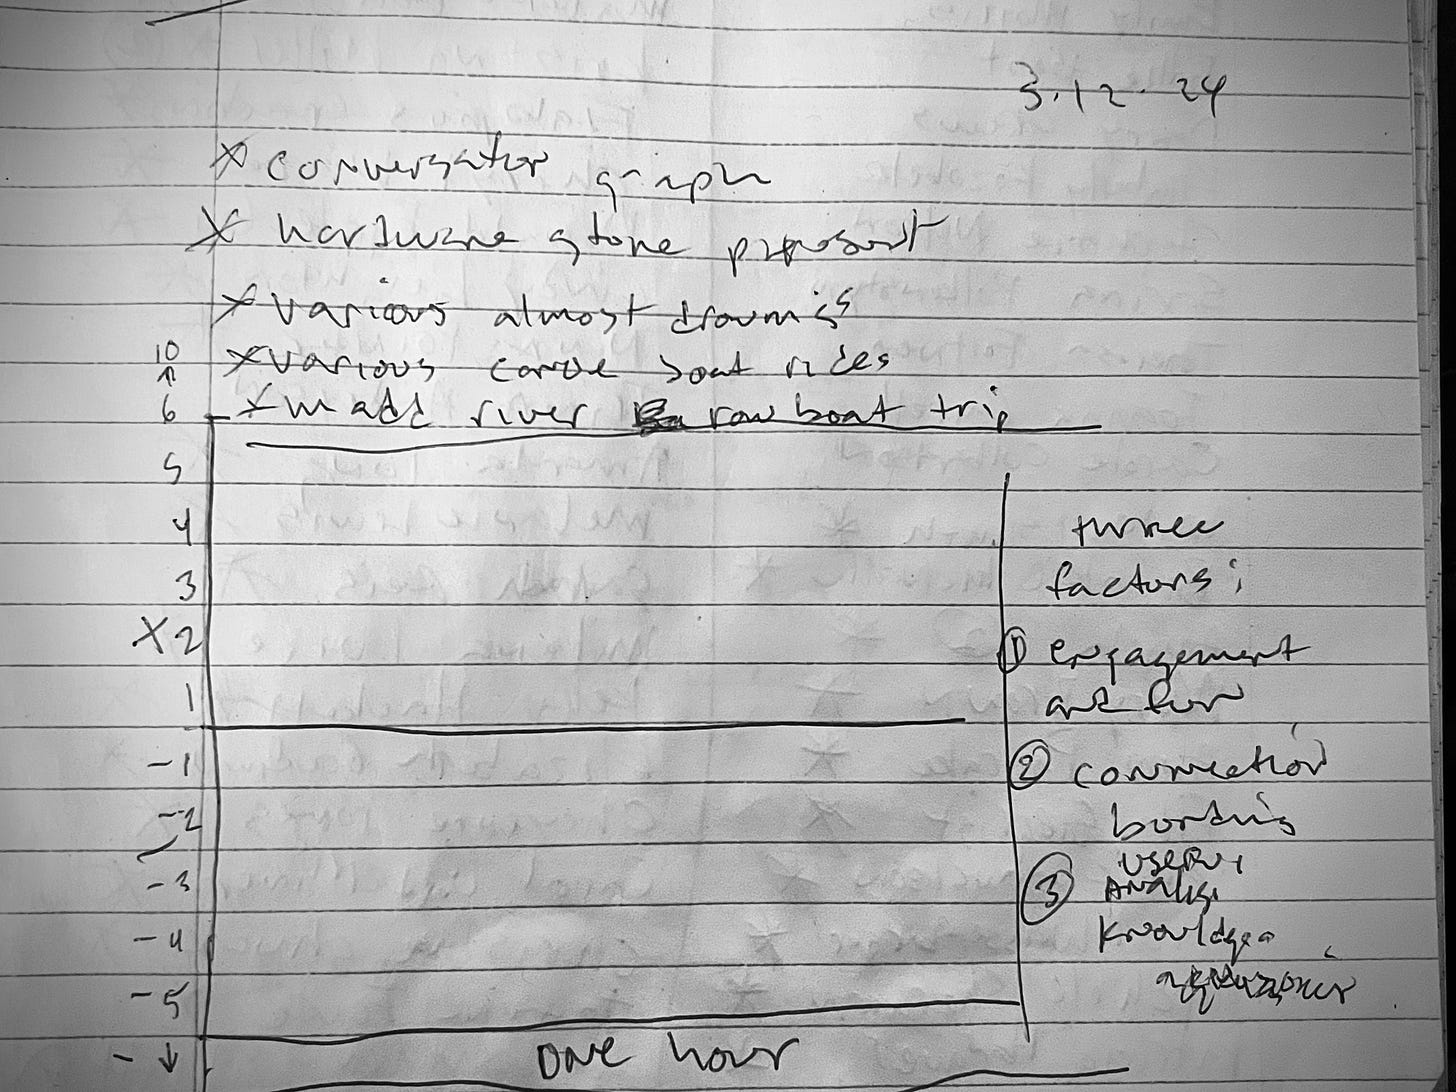 3.12.24
* conversation graph
* hardware store present
* various almost drownings
* various canoe boat rides
* madd river row boat trip
10
↑
6
5
4
3
X 2
1
-1
-2
-3
-4
-5
- ↓
one hour
three
factors:
① engagement
and fun
② connection
bonding
③ useful
Analysis
knowledge